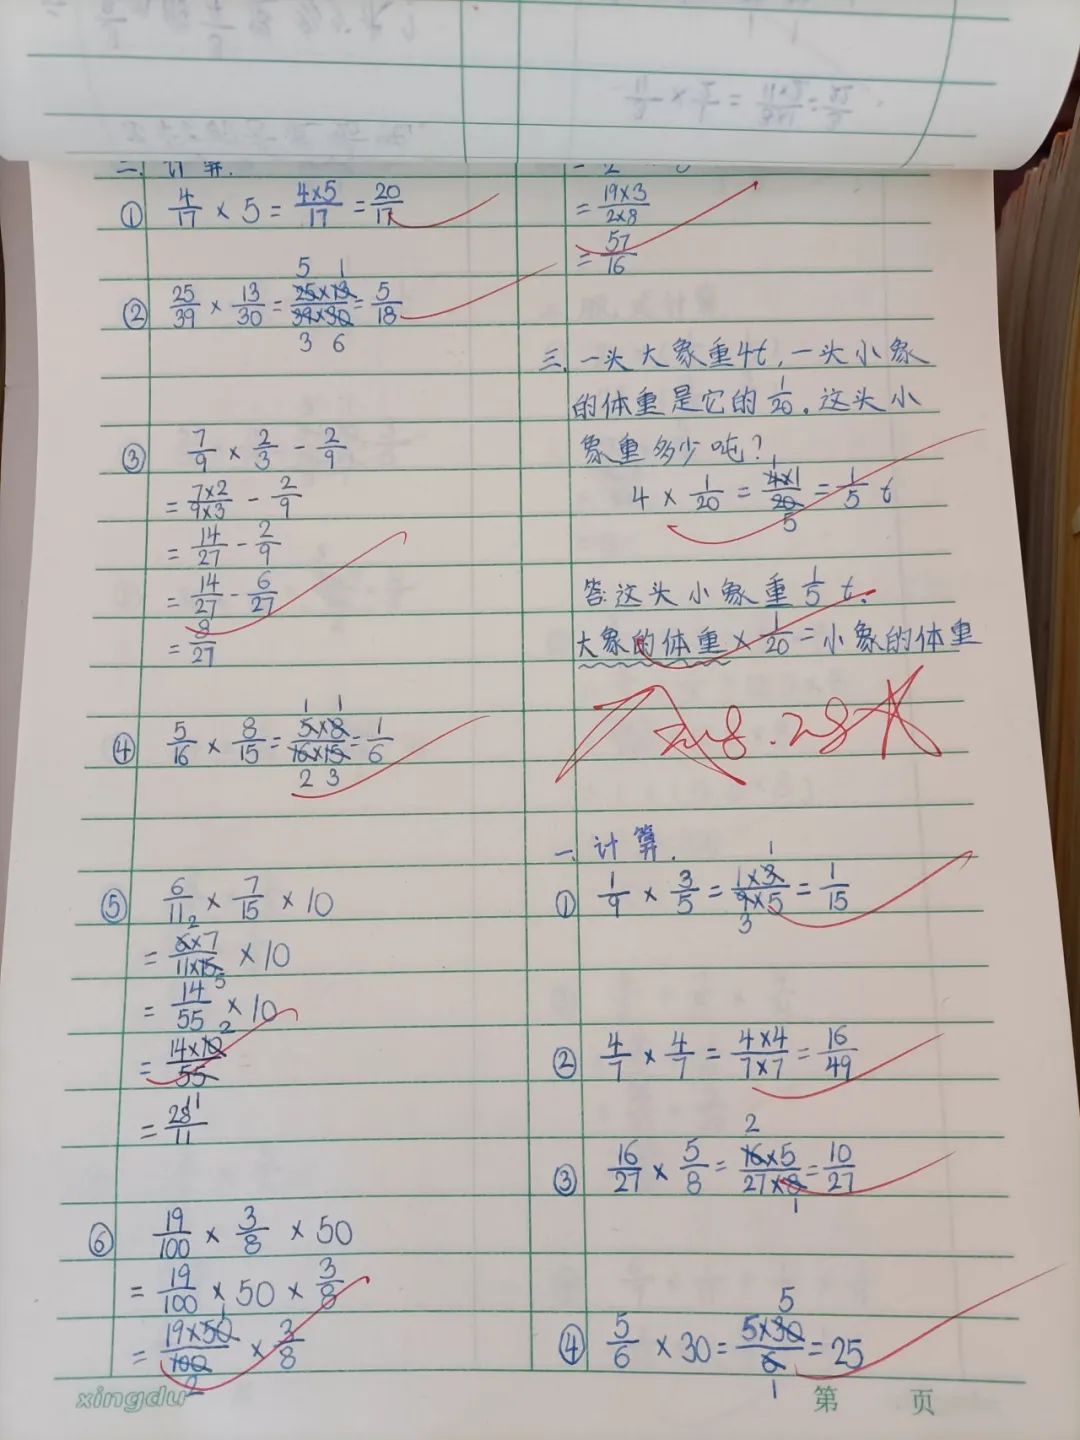 二. 计算.
① 4/17 × 5 = 4×5/17 = 20/17
5 1
② 25/39 × 13/30 = 25×13/39×30 = 5/18
3 6
③ 7/9 × 2/3 - 2/9
= 7×2/9×3 - 2/9
= 14/27 - 2/9
= 14/27 - 6/27
= 8/27
1 1
④ 5/16 × 8/15 = 5×8/16×15 = 1/6
2 3
⑤ 6/11 × 7/15 × 10
2
= 6×7/11×15 × 10
5
= 14/55 × 10
2
= 14×10/55
11
= 28/11
⑥ 19/100 × 3/8 × 50
= 19/100 × 50 × 3/8
1
= 19×50/100 × 3/8
2
= 19×3/2×8
= 57/16
三. 一头大象重4t, 一头小象
的体重是它的1/20. 这头小
象重多少吨?
1
4 × 1/20 = 4×1/20 = 1/5 t
5
答:这头小象重1/5 t.
大象的体重 × 1/20 = 小象的体重
一. 计算.
1
① 1/9 × 3/5 = 1×3/9×5 = 1/15
3
② 4/7 × 4/7 = 4×4/7×7 = 16/49
2
③ 16/27 × 5/8 = 16×5/27×8 = 10/27
1
5
④ 5/6 × 30 = 5×30/6 = 25
1
xingdu
第 页